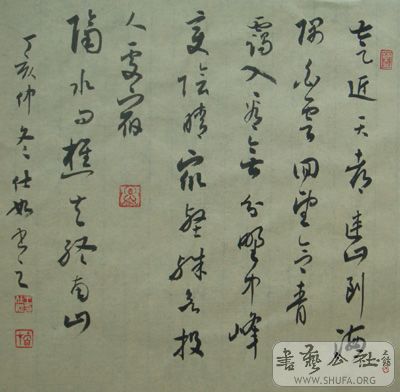 太乙近天都連山到海
隅白雲回望合青
靄入看無分野中峰
變陰晴眾壑殊欲投
人處宿
隔水問樵夫終南山
丁亥仲冬仕如書
書藝公社
WWW.SHUFA.ORG